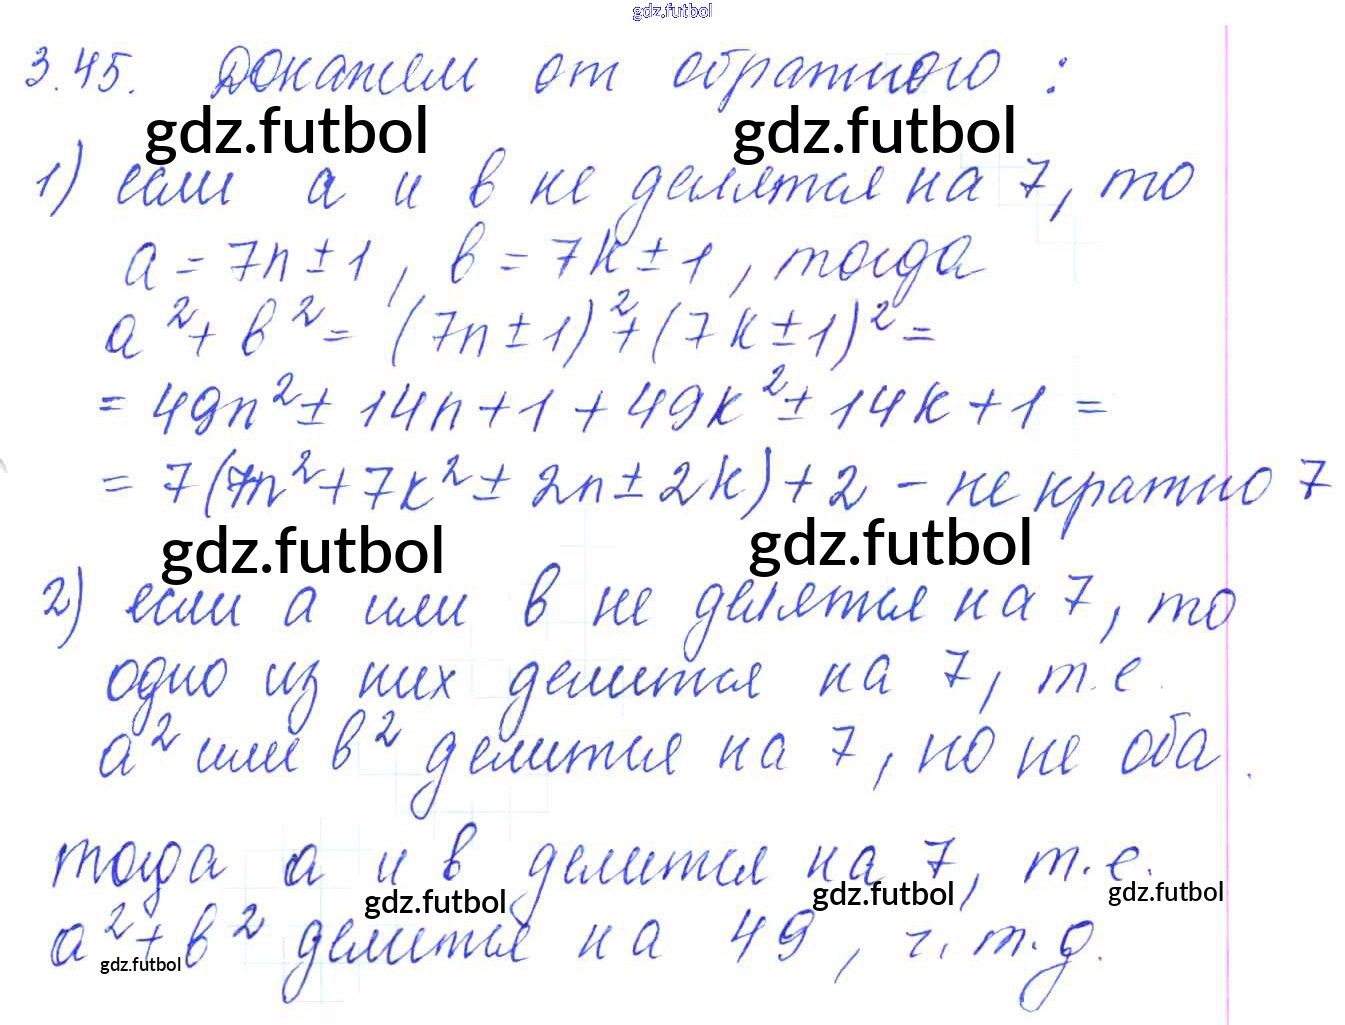 gdz.futbol
3.45. Докажем от обратного :
gdz.futbol gdz.futbol
1) если а и в не делятся на 7, то
а = 7n ± 1, в = 7k ± 1, тогда
а² + в² = (7n ± 1)² + (7k ± 1)² =
= 49n² ± 14n + 1 + 49k² ± 14k + 1 =
= 7(7n² + 7k² ± 2n ± 2k) + 2 - не кратно 7
gdz.futbol gdz.futbol
2) если а или в не делятся на 7, то
одно из них делится на 7, т.е.
а² или в² делится на 7, но не оба.
тогда а и в делится на 7, т.е.
gdz.futbol gdz.futbol gdz.futbol
а² + в² делится на 49, ч.т.д.
gdz.futbol